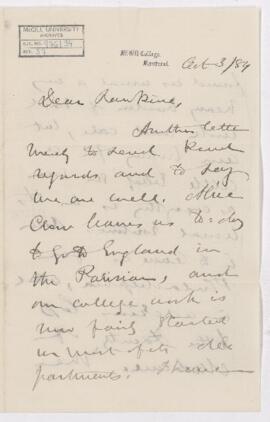 McGILL UNIVERSITY
ARCHIVES
ACC. NO.
REF.
McGill College,
Montreal.
Oct 3/84
Dear Rankine,
Another letter
merely to send kind
regards and to say
we are well. Miss
leaves us to-day
to go to England in
the Parisian, and
our college work is
now fairly started
in most of its de-
partments.